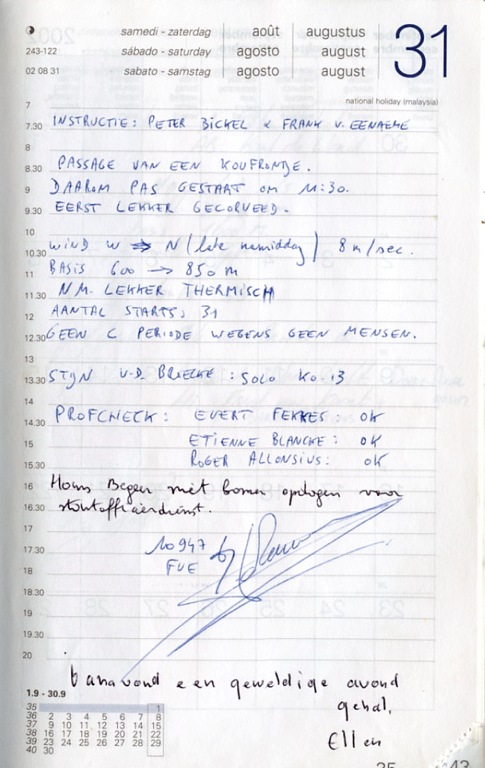 samedi - zaterdag août augustus
243-122 sábado - saturday agosto august
02 08 31 sabato - samstag agosto august
31
national holiday (malaysia)
7
7.30 INSTRUCTIE: PETER BICKEL & FRANK V. EENAEME
8
8.30 PASSAGE VAN EEN KOUFRONTJE.
9 DAAROM PAS GESTART OM 11:30.
9.30 EERST LEKKER GECORVEED.
10
10.30 WIND W → N (late namiddag) 8 m/sec.
11 BASIS 600 → 850 m
11.30 N.M. LEKKER THERMISCH
12 AANTAL STARTS: 31
12.30 GEEN C PERIODE WEGENS GEEN MENSEN.
13
13.30 STIJN V.D. BRIECKE: SOLO KA-13
14
14.30 PROFCHECK: EVERT FEKKES: OK
15 ETIENNE BLANCKE: OK
15.30 ROGER ALLONSIUS: OK
16 Hans Begen met bomen opdagen voor
16.30
17
17.30 10947
18 FVE
18.30
19
19.30
20
een geweldige avond
1.9 - 30.9 gehad.
35 1
36 2 3 4 5 6 7 8
37 9 10 11 12 13 14 15
38 16 17 18 19 20 21 22
39 23 24 25 26 27 28 29
40 30
Ellen